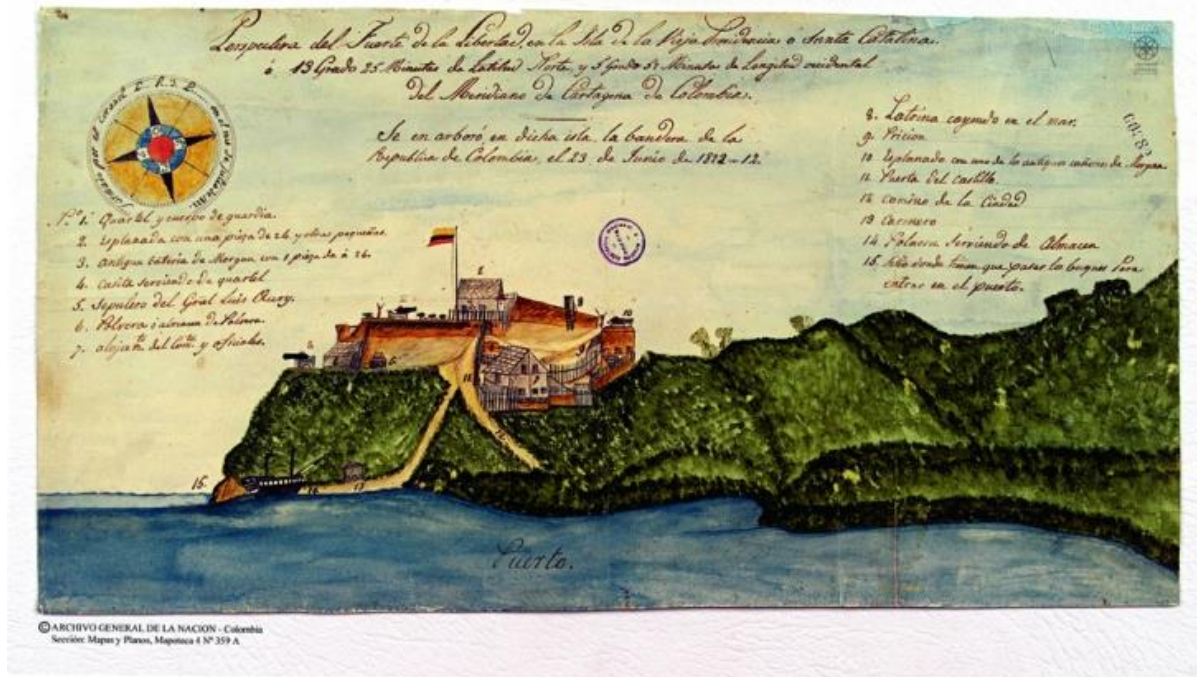 Perspectiva del Fuerte de la Libertad, en la Isla de la Vieja Providencia ó Santa Catalina.
á 13 Grado 25 Minutos de Latitud Norte, y 5 Grado 5 Minutos de Longitud occidental
Del Meridiano de Cartagena de Colombia.
Se en arboró en dicha isla la bandera de la
Republica de Colombia, el 23 de Junio de 1822-12.
Nº 1. Quartel y cuerpo de guardia.
2. Esplanada con una pieza de 24 y otras pequeñas.
3. Antigua bateria de Morgan con 1 pieza de à 24.
4. Casita serviendo de quartel
5. Sepulcro del Gral Luis Aury.
6. Pólvora ó almacen de Polvora.
7. alojato. del Comte. y oficiales.
8. Latrina cayendo en el mar.
9. Pricion
10 Esplanado con uno de lo antiguo cañones de Morgan
11. Puerta del Castillo.
12 Camino de la Ciudad
13 Carnnero
14 Polacra serviendo de Almacen
15. sitio donde tienen que pasar los buques Para
entrar en el puerto.
15.
Puerto.
© ARCHIVO GENERAL DE LA NACION - Colombia
Sección: Mapas y Planos, Mapoteca 4 Nº 359 A